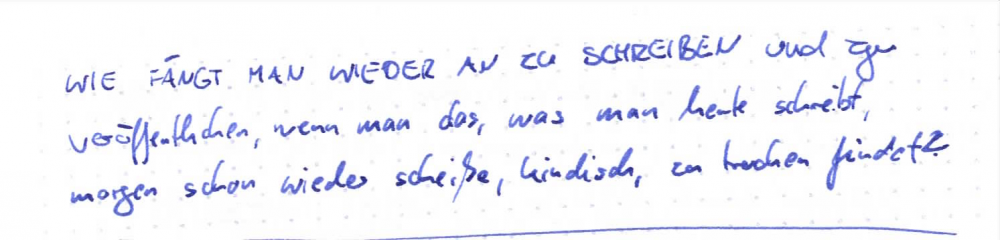 WIE FÄNGT MAN WIEDER AN ZU SCHREIBEN und zu
veröffentlichen, wenn man das, was man heute schreibt,
morgen schon wieder scheiße, kindisch, zu trocken findet?